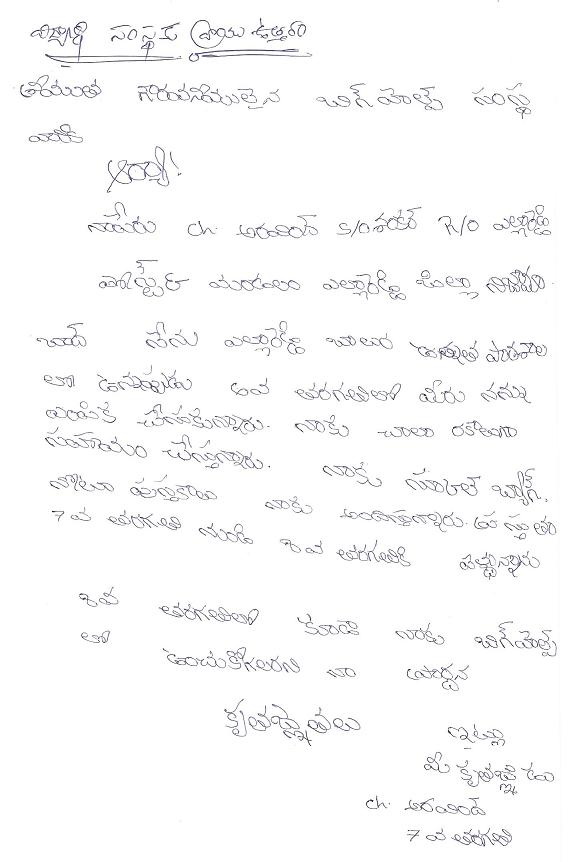 విద్యార్థి సంస్థకు వ్రాయు ఉత్తరం
శ్రీయుత గౌరవనీయులైన బిగ్ హెల్ప్ సంస్థ
వారికి
ఆర్యా!
నాపేరు ch. అరవింద్ S/O శంకర్ R/O ఎల్లారెడ్డి
పోస్ట్ మండలం ఎల్లారెడ్డి జిల్లా నిజామా
బాద్ నేను ఎల్లారెడ్డి బాలుర ఉన్నత పాఠశాల
లో ఉన్నప్పుడు 6వ తరగతిలో మీరు నన్ను
ఎంపిక చేసుకున్నారు. నాకు చాలా రకాలుగా
సహాయం చేస్తున్నారు. నాకు స్కూల్ బ్యాగ్,
నోటు పుస్తకాలు నాకు అందిస్తున్నారు. ప్రస్తుతం
7వ తరగతి నుండి 8వ తరగతికి వెళ్తున్నాను
8వ తరగతిలో కూడా నాకు బిగ్ హెల్ప్
లో ఉంచుకోగలరని నా ప్రార్థన
కృతజ్ఞతలు
ఇట్లు
మీ కృతజ్ఞుడు
ch. అరవింద్
7వ తరగతి